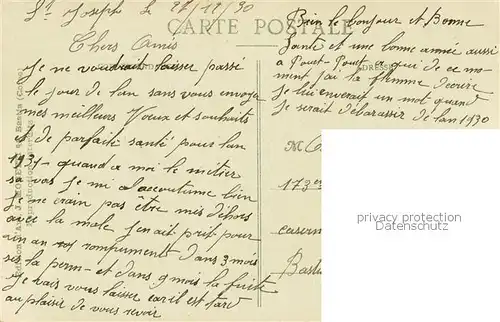 St Joseph L 28/12/30
CARTE POSTALE
Chers Amis
Je ne voudrait laisser passé
le jour de lan sans vous envoyer
mes meilleurs Voux et souhaits
et de parfait santé pour lan
1931 - quand a moi le métier
sa vas Je mi alaccoutume bien
Je ne crain pas être mis dehors
avec la mole Jenait prit pour
un an
dans 3 mois
sis la perm - et dans 9 mois la fuite
Je vais vous laisser car il est tard
au plaisir de vous revoir
Bien le bonjour et Bonne
Santé et une bonne année aussi
a Pouet-Pouet a qui de ce mo-
ment Jai la flemme décrire
Je lui enverait un mot quand
Je serait débarassir de lan 1930
ADRESSE
M
173e
casern
Bast
privacy protection
Datenschutz